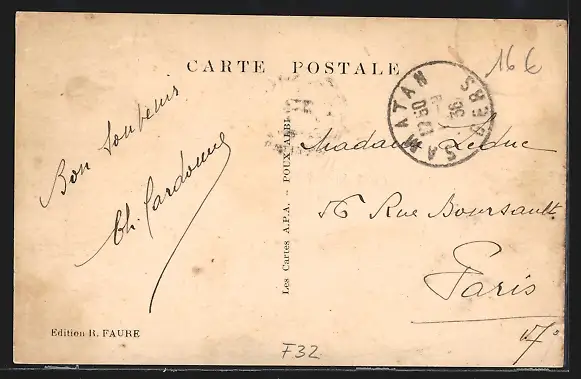 CARTE POSTALE
16 €
SAMATAN GERS
1250
9
36
Bon Souvenir
Ch. Cardonne
Les Cartes A.P.A. - POUX-ALBI
Madame Leduc
56 Rue Boursault
Paris
17°
Edition R. FAURE
F32